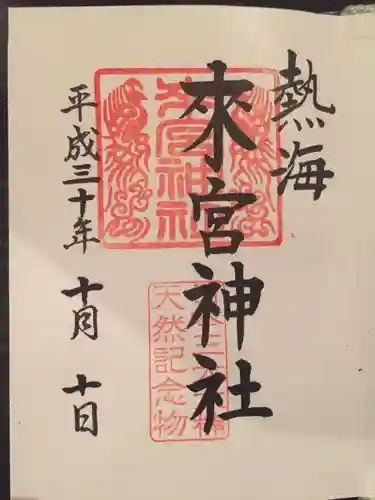 熱海
來宮神社
平成三十年 十月 十日
來宮神社
天然記念物